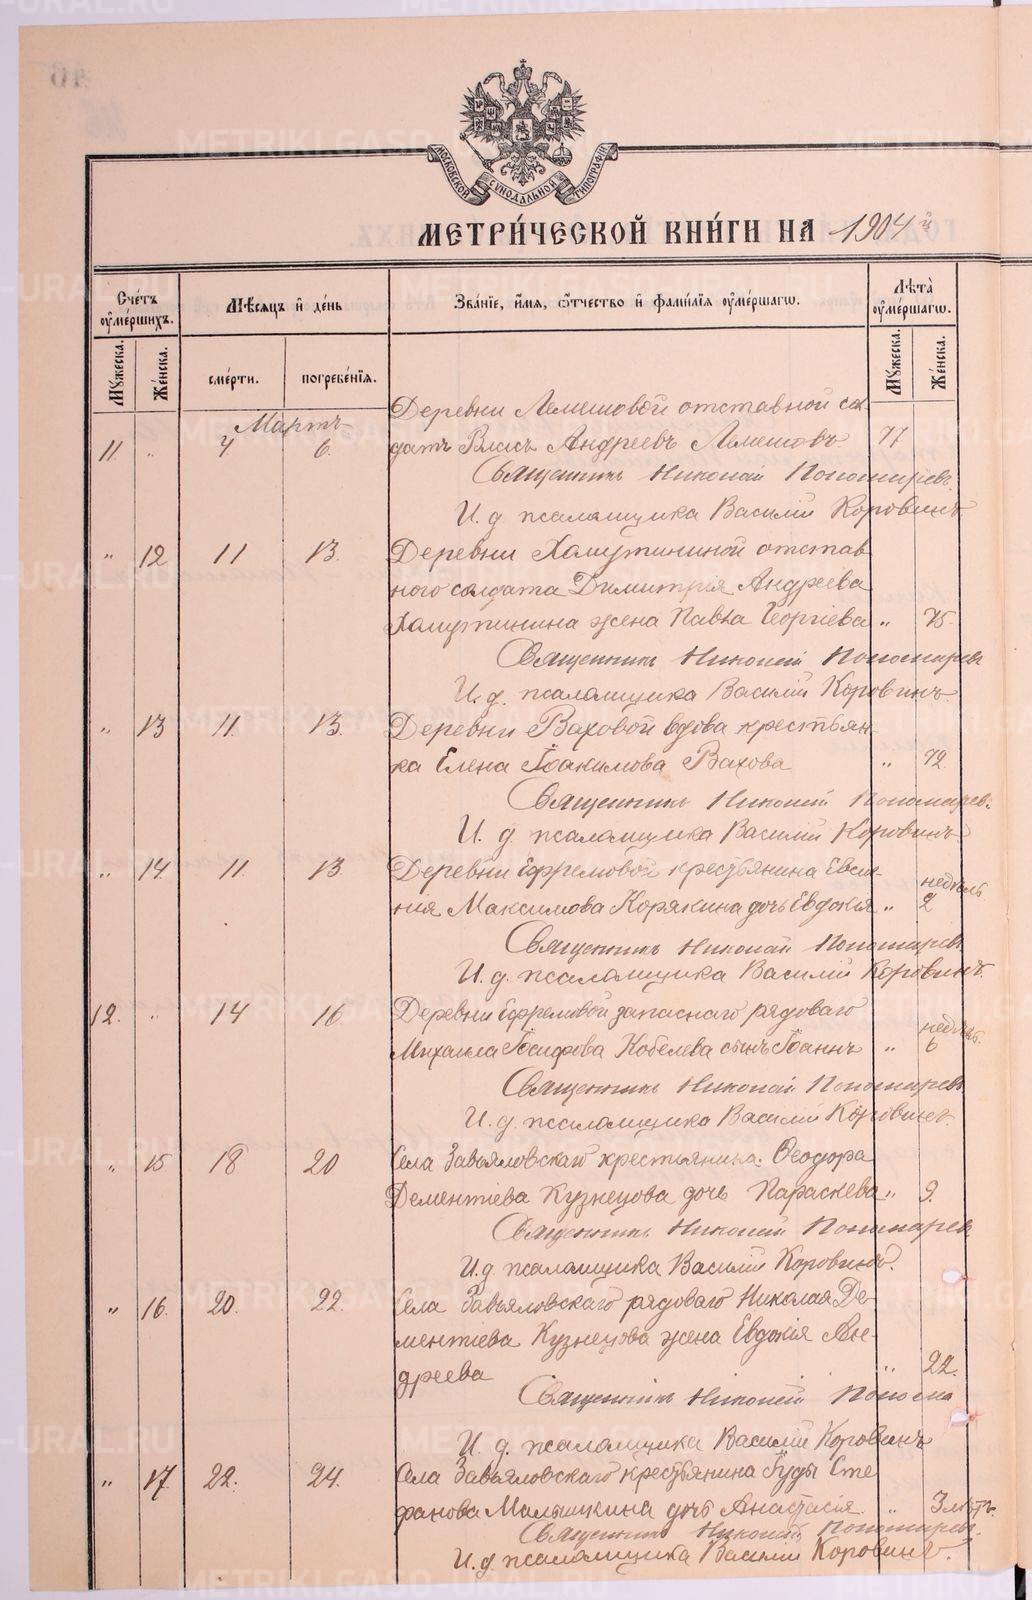 МОСКОВСКОЙ СѴНОДАЛЬНОЙ ТИПОГРАФІИ
МЕТРИ́ЧЕСКОЙ КНИ́ГИ НА 1904й
Сче́тъ ᲂу҆ме́ршихъ.
Мꙋжеска.
Же́нска.
Мѣсяцъ и҆ де́нь
сме́рти.
погребе́нїя.
Зва́нїе, и҆́мя, ѻ҆́тчество и҆ фами́лїя ᲂу҆ме́ршагѡ.
Лѣта̀ ᲂу҆ме́ршагѡ.
Мꙋжеска.
Же́нска.
Мартъ
Деревни Лемешовой отставной сол-
11. " 4 6. датъ Власъ Андреевъ Лемешовъ 77
Священникъ Николай Пономаревъ.
И. д. псаломщика Василій Коровинъ
" 12 11 13. Деревни Хамутининой отстав-
ного солдата Димитрія Андреева
Хамутинина жена Павла Георгіева " 75.
Священникъ Николай Пономарева
И. д. псаломщика Василій Коровинъ
" 13 11. 13. Деревни Ваховой вдова крестьян-
ка Елена Іоакимова Вахова " 72.
Священникъ Николай Пономарев.
И. д. псаломщика Василій Коровинъ
" 14. 11. 13. Деревни Ефремовой крестьянина Евсе-
нія Максимова Корякина дочь Евдокія " недѣль 2
Священникъ Николай Пономаревъ
И. д. псаломщика Василій Коровинъ.
12. " 14 16 Деревни Ефремовой запаснаго рядоваго
Михаила Іосифова Кобелева сынъ Іоаннъ " недѣль. 6
Священникъ Николай Пономаревъ
И. д. псаломщика Василій Коровинъ.
" 15 18 20 Села Завьяловскаго крестьянина Ѳеодора
Дементіева Кузнецова дочь Параскева " 9.
Священникъ Николай Пономарев
И. д. псаломщика Василій Коровинъ.
" 16. 20. 22. Села Завьяловскаго рядоваго Николая Де-
ментіева Кузнецова жена Евдокія Ан-
дреева " 22.
Священникъ Николай Понома
И. д. псаломщика Василій Коровинъ
" 17. 22. 24. Села Завьяловскаго крестьянина Іуды Сте
фанова Малышкина дочь Анастасія " 3 лѣтъ.
Священникъ Николай Пономаревъ.
И. д. псаломщика Василій Коровинъ.
METRIKI.GASO-URAL.RU